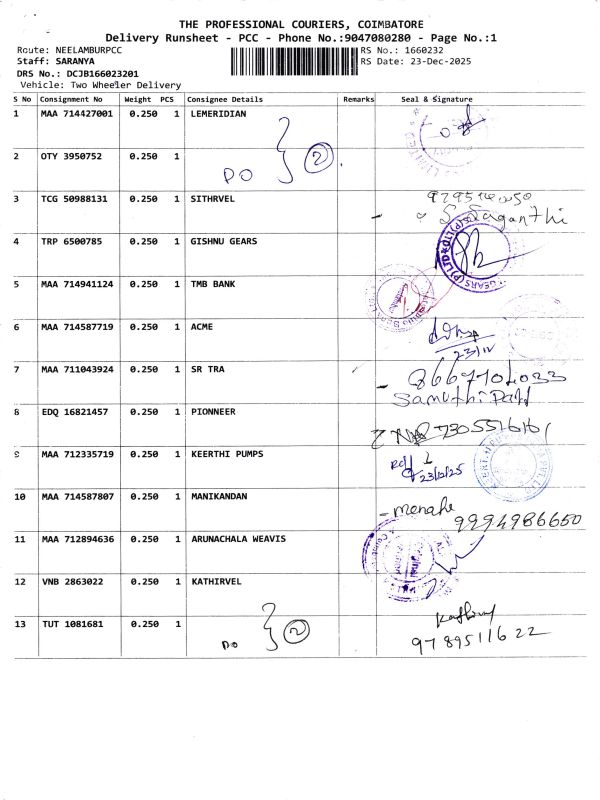 THE PROFESSIONAL COURIERS, COIMBATORE
Delivery Runsheet - PCC - Phone No.:9047080280 - Page No.:1
Route: NEELAMBURPCC
RS No.: 1660232
Staff: SARANYA
RS Date: 23-Dec-2025
DRS No.: DCJB166023201
Vehicle: Two Wheeler Delivery
S No Consignment No Weight PCS Consignee Details Remarks Seal & Signature
1 MAA 714427001 0.250 1 LEMERIDIAN
2 OTY 3950752 0.250 1 DO 2
3 TCG 50988131 0.250 1 SITHRVEL
4 TRP 6500785 0.250 1 GISHNU GEARS
5 MAA 714941124 0.250 1 TMB BANK
6 MAA 714587719 0.250 1 ACME
23/12
7 MAA 711043924 0.250 1 SR TRA
8 EDQ 16821457 0.250 1 PIONNEER
9 MAA 712335719 0.250 1 KEERTHI PUMPS
23/12/25
10 MAA 714587807 0.250 1 MANIKANDAN
9994986650
11 MAA 712894636 0.250 1 ARUNACHALA WEAVIS
12 VNB 2863022 0.250 1 KATHIRVEL
13 TUT 1081681 0.250 1 DO 2
9789511622